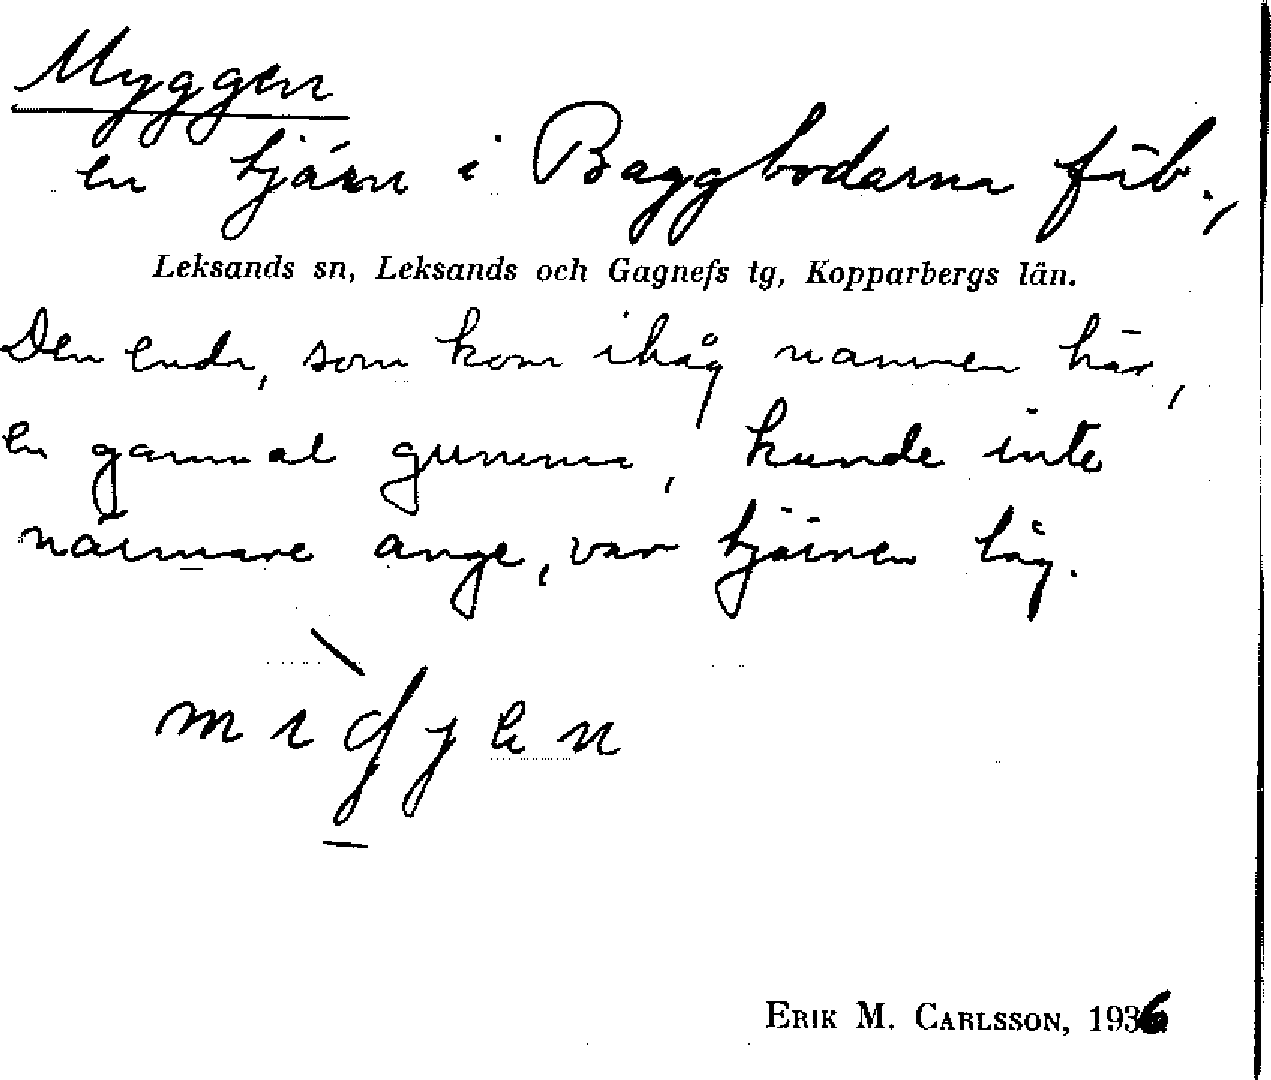 Myggen
en tjärn i Baggbodarna fäb.,
Leksands sn, Leksands och Gagnefs tg, Kopparbergs län.
Den enda, som kom ihåg namnen här,
en gammal gumma, kunde inte
närmare ange, var tjärnen låg.
ERIK M. CARLSSON, 1936